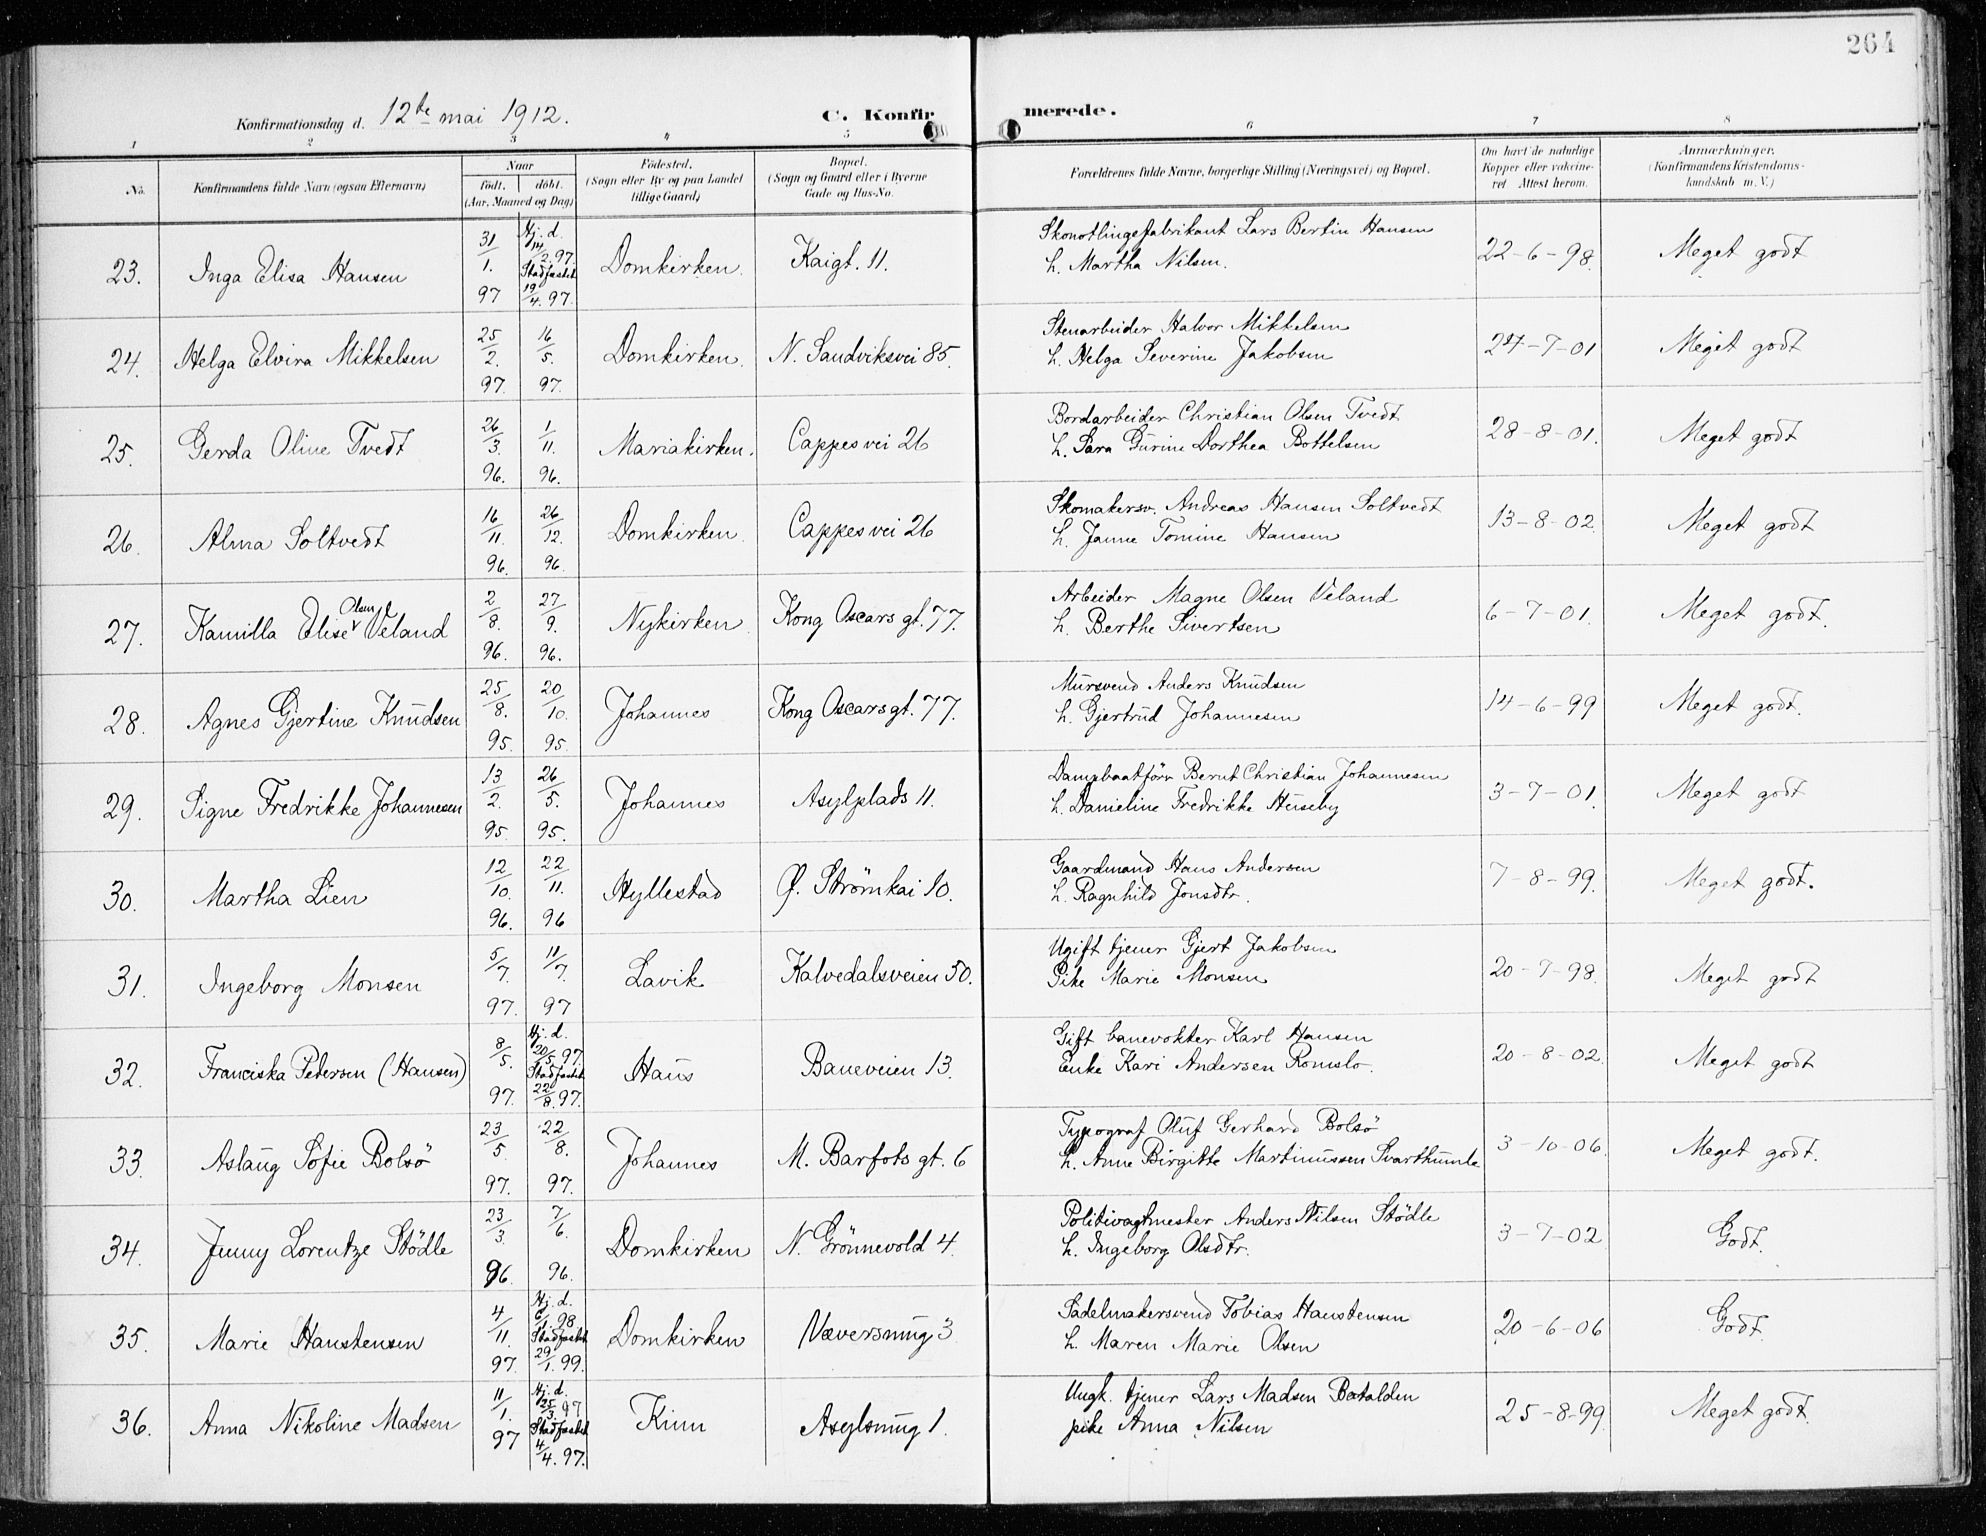 264
Konfirmationsdag d. 12te mai 1912. C. Konfirmerede.
1 2 3 " 5 6 7 8
No. Konfirmandens fulde Navn (ogsaa Efternavn) Naar Födested. Bopæl. Forældrenes fulde Navne, borgerlige Stilling (Næringsvei) og Bopæl. Om havt de naturlige Anmærkninger.
födt. döbt. (Sogn eller By og paa Landet (Sogn og Gaard eller i Byerne Kopper eller vakcine- (Konfirmandens Kristendoms-
(Aar, Maaned og Dag) tillige Gaard) Gade og Hus-No. ret Attest herom. kundskab m. V.)
23. Inga Elisa Hansen 31/1. 97 Hj. d. 14/2. 97. Stadfæstet 19/4. 97. Domkirken. Kaigt. 11. Skonotlingefabrikant Lars Bertin Hansen
h. Martha Nilsen. 22-6-98. Meget godt
24. Helga Elvira Mikkelsen 25/2. 97. 16/5. 97. Domkirken. N. Sandviksvei 85. Stenarbeider Halvor Mikkelsen
h. Helga Severine Jakobsen 24-7-01 Meget godt
25. Gerda Oline Tvedt 26/3. 96. 1/11. 96. Mariakirken. Cappes vei 26 Bordarbeider Christian Olsen Tvedt
h. Sara Gurine Dorthea Bottelsen 28-8-01. Meget godt
26. Alma Soltvedt 16/11. 96. 26/12. 96. Domkirken. Cappes vei 26 Skomakersv. Andreas Hansen Soltvedt
h. Janne Tomine Hansen 13-8-02. Meget godt
27. Kamilla Elise Olsen Veland 2/8. 96. 27/9. 96. Nykirken. Kong Oscars gt. 77. Arbeider Magne Olsen Veland
h. Berthe Sivertsen 6-7-01. Meget godt.
28. Agnes Gjertine Knudsen 25/8. 95. 20/10. 95. Johannes Kong Oscars gt. 77. Mursvend Anders Knudsen
h. Gjertrud Johannesen 14-6-99 Meget godt.
29. Signe Fredrikke Johannesen 13/2. 95. 26/5. 95. Johannes Asylplads 11. Dampbaatförer Bernt Christian Johannesen
h. Danieline Fredrikke Huseby 3-7-01. Meget godt
30. Martha Lien 12/10. 96. 22/11. 96 Hyllestad Ø. Strömkai 10. Gaardmand Hans Andersen
h. Ragnhild Jonsdtr. 7-8-99. Meget godt.
31. Ingeborg Monsen 5/7. 97. 11/7. 97 Lavik Kalvedalsveien 50. Ugift tjener Gjert Jakobsen
Pike Marie Monsen 20-7-98. Meget godt
32. Franciska Pedersen (Hansen) 8/5. 97. Hj. d. 20/5. 97. Stadfæstet 22/8. 97. Haus Baneveien 13. Gift banevokter Karl Hansen
Enke Kari Andersen Romslo. 20-8-02. Meget godt
33. Aslaug Sofie Bolsö 23/5. 97. 22/8. 97. Johannes M. Barfots gt. 6 Typograf Oluf Gerhard Bolsö
h. Anne Birgitte Martinussen Svarthumle 3-10-06. Meget godt.
34. Jenny Lorentze Stödle 23/3 96. 7/6. 96. Domkirken N. Grönnevold 4. Politivagtmester Anders Nilsen Stödle
h. Ingeborg Olsdtr. 3-7-02 Godt.
35. Marie Haustensen 4/11. 97. Hj. d. 6/1. 98 Stadfæstet 29/1. 99. Domkirken Væversmug 3 Sadelmakersvend Tobias Haustensen
h. Maren Marie Olsen 20-6-06 Godt.
36. Anna Nikoline Madsen 11/1. 97 Hj. d. 25/3. 97 Stadfæstet 4/4. 97. Kinn Asylsmug 1. Ungk. tjener Lars Madsen Batalden
pike Anna Nilsen 25-8-99. Meget godt.